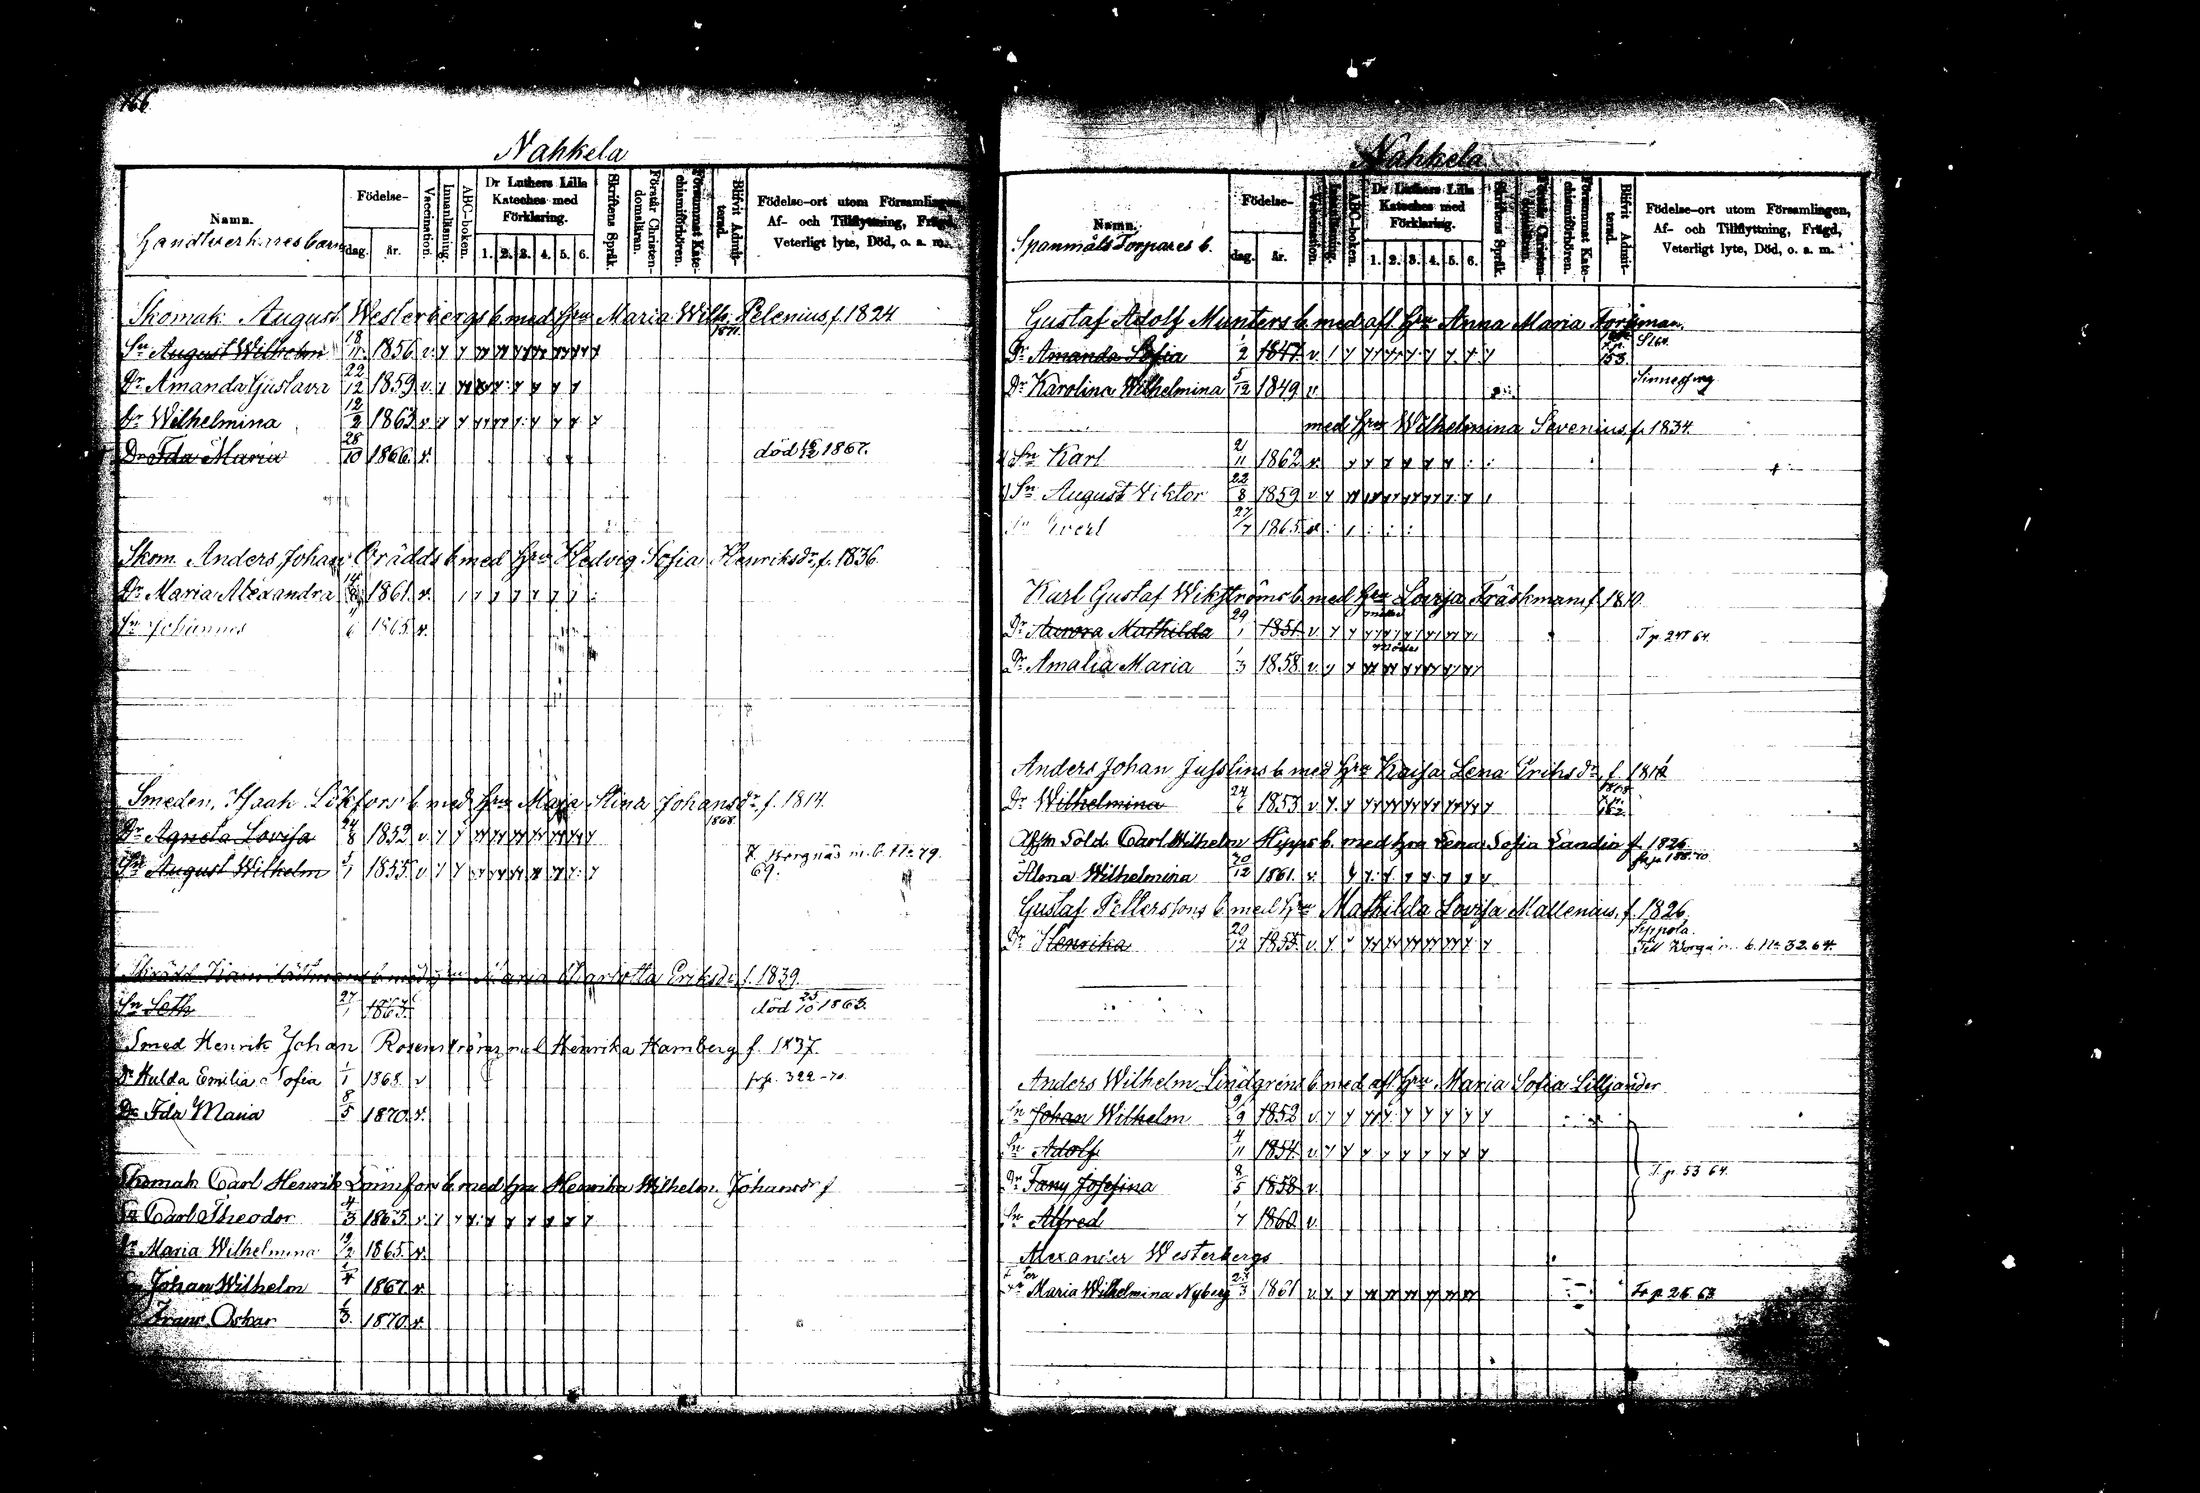 166
Nahkela
Namn.
Handtverkares barn
Födelse-
dag.
år.
Vaccination.
Innanläsning.
ABC-boken.
Dr Luthers Lilla
Kateches med
Förklaring.
1. 2. 3. 4. 5. 6.
Skriftens Språk.
Förstår Christen-
domsläran.
Försummat Kate-
chismiförhören.
Blifvit Admit-
terad.
Födelse-ort utom Församlingen,
Af- och Tillflyttning, Frägd,
Veterligt lyte, Död, o. a. m.
Skomak. August Westerbergs b. med hru Maria Wilh. Pelenius, f. 1824
1871.
Sn August Wilhelm 18/11 1856 v.
Dr Amanda Gustava 22/12 1859 v.
Dr Wilhelmina 12/2 1863 v.
Dr Ida Maria 28/10 1866 v. död 1867.
Skom. Anders Johan Orädds b. med hru Hedvig Sofia Henriksdr, f. 1836.
Dr Maria Alexandra 1861. v.
Sn Johannes 1865 v.
Smeden, Isaak Löfkfors b. med hru Maja Stina Johansdr, f. 1814.
1868.
Dr Agneta Lovisa 24/8 1852 v.
Sn August Wilhelm 1855 v. T. Borgnäs m. b. No 79.
69.
Maria Charlotta Eriksdr, f. 1839.
Sn Seth 27/1 1865 död 25/10 1865.
Smed Henrik Johan Rosenströms med Henrika Hamberg f. 1837.
Dr Hulda Emilia Sofia 1/1 1868 v fr. p. 322-70.
Dr Ida Maria 8/5 1870. v.
Skomak. Carl Henrik Lönnfors b. med hru Henrika Wilhelm. Johansdr f
Sn Carl Theodor 4/3 1863. v.
Dr Maria Wilhelmina 19/2 1865. v.
Johan Wilhelm 1867. v.
Frans Oskar 1/3 1870. v.
Nahkela
Namn.
Spanmåls Torpares b.
Födelse-
dag.
år.
Vaccination.
Innanläsning.
ABC-boken.
Dr Luthers Lilla
Kateches med
Förklaring.
1. 2. 3. 4. 5. 6.
Skriftens Språk.
Förstår Christen-
domsläran.
Försummat Kate-
chismiförhören.
Blifvit Admit-
terad.
Födelse-ort utom Församlingen,
Af- och Tillflyttning, Frägd,
Veterligt lyte, Död, o. a. m.
Gustaf Adolf Munters b. med afl. hru Anna Maria Forsman.
Dr Amanda Sofia 1/2 1847 v 153.
Dr Karolina Wilhelmina 5/12 1849 v. Sinnessvag
med hru Wilhelmina Sevenius, f. 1834.
Sn Karl 2/11 1862 v.
Sn August Viktor 22/8 1859 v
Sn Evert 27/7 1865. v.
Karl Gustaf Wikströms b. med hru Lovisa Träskman, f. 1810
Dr Aurora Mathilda 29/1 1851 v. T. p. 247 64.
Dr Amalia Maria 1/3 1858 v.
Anders Johan Jusslins b. med hru Kaisa Lena Eriksdr, f. 1812
1868.
Dr Wilhelmina 24/6 1853 v. T. p.
162.
Afsk. Sold. Carl Wilhelm Hipps b. med hru Lena Sofia Landin f. 1826
fr. p. 188.70
Alena Wilhelmina 20/12 1861. v.
Gustaf Pellerssons b. med hru Mathilda Lovisa Mallenius, f. 1826.
Sippola.
Dr Henrika 20/12 1855. v. Till Borgå m. b. No 32. 64.
Anders Wilhelm Lindgrens b. med afl. hru Maria Sofia Lilljander
Sn Johan Wilhelm 9/9 1852 v.
Sn Adolf 4/11 1854. v.
Dr Fany Josefina 8/5 1858 v. T. p. 53 64.
Sn Alfred 1/7 1860. v.
Alexander Westerbergs
Maria Wilhelmina Nyberg 23/3 1861 v. Fr p. 26. 63.